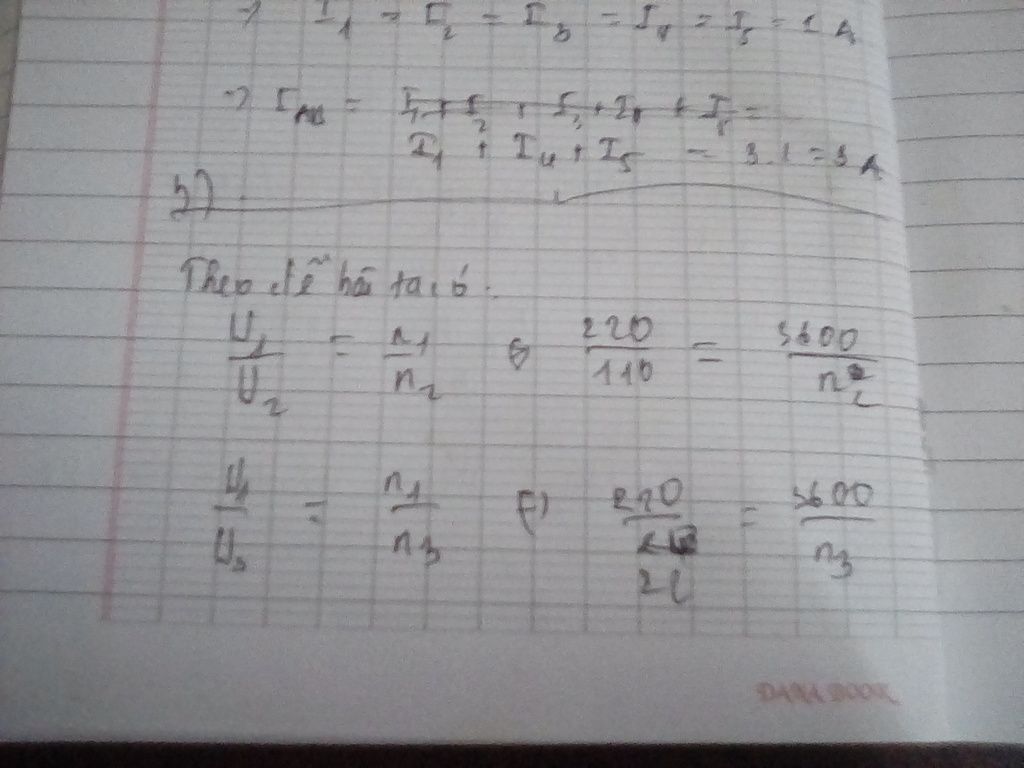 => I1 = I2 = I3 = I4 = I5 = 1 A
=> IAB = I1 + I2 + I3 + I4 + I5 =
I1 + I4 + I5 = 3.1 = 3 A
3)
Theo đề bài ta có:
U1/U2 = n1/n2 <=> 220/110 = 3600/n2
U1/U3 = n1/n3 <=> 220/22 = 3600/n3